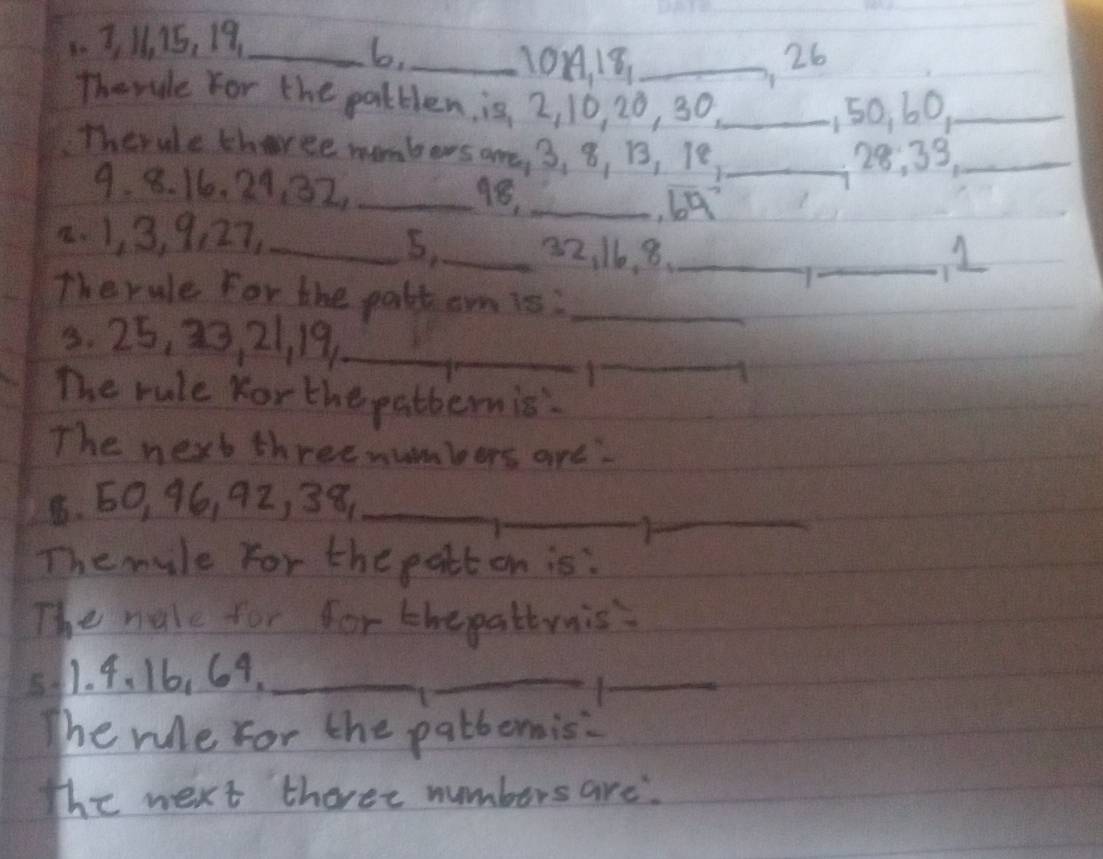 1. 7, 11, 15, 19, ____ 6. ____ 10, 14, 18, ____, 26
The rule for the pattlen. is, 2, 10, 20, 30, ____, 50, 60, ____
The rule thoree mombers are, 3, 8, 13, 18, ____, 28, 33, ____
4. 8. 16. 24, 32, ____ 48, ____, 64
2. 1, 3, 9, 27, ____ 5, ____ 32, 16, 8, ____, ____, 1
The rule for the patt em is: ____
3. 25, 23, 21, 19, ____, ____, ____
The rule for the pattern is:
The next three numbers are:
8. 50, 46, 42, 38, ____, ____, ____
The rule for the patt on is:
The rule for for the pattrn is:
5. 1. 4. 16, 64. ____, ____, ____
The rule for the pattem is:
the next thoree numbers are: